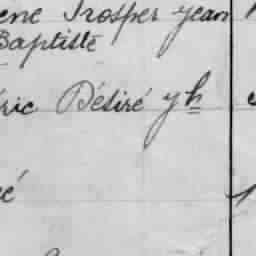 ene Prosper Jean
Baptiste
éric Désiré Jh
é